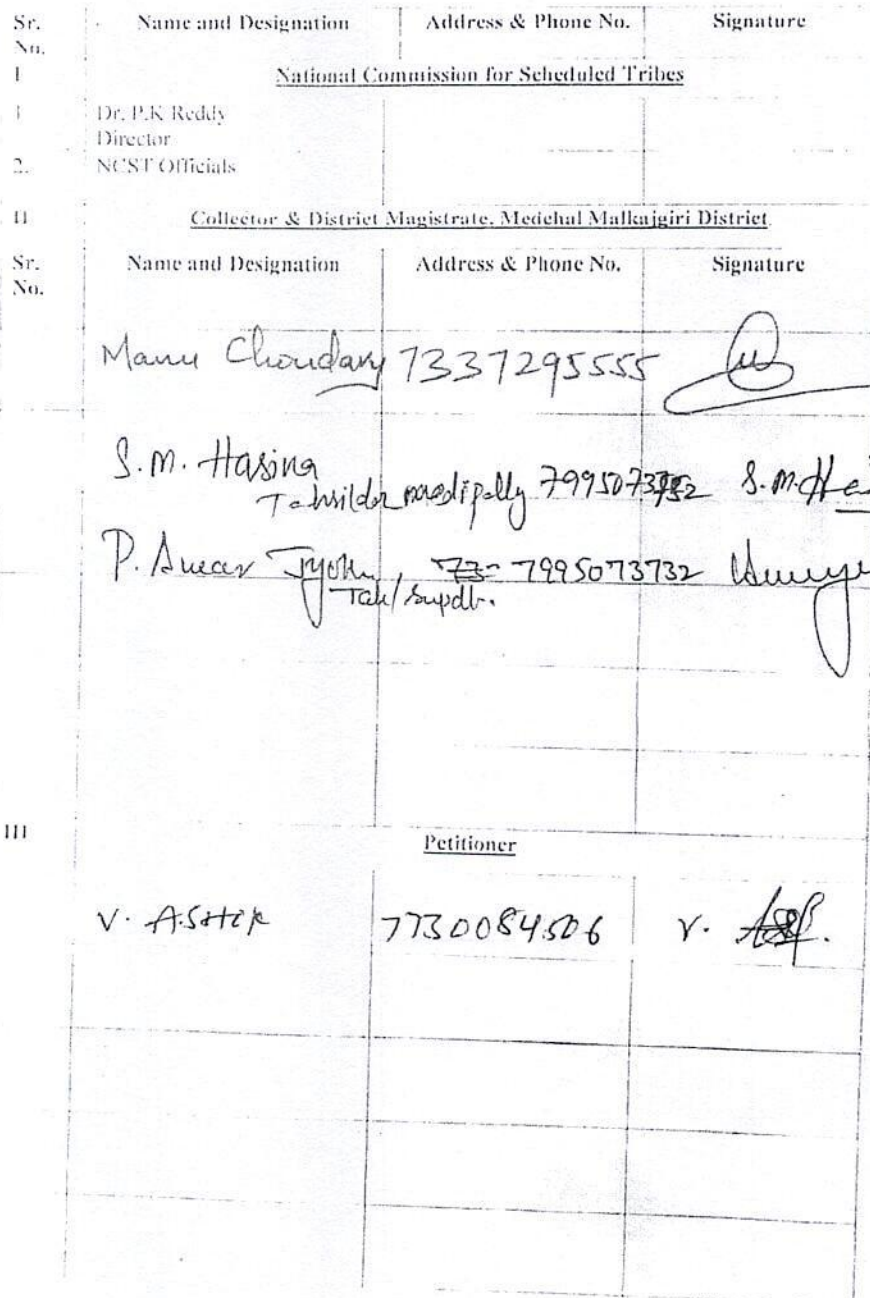 Sr. No. Name and Designation Address & Phone No. Signature
I National Commission for Scheduled Tribes
1 Dr. P.K Reddy
Director
2. NCST Officials
II Collector & District Magistrate, Medchal Malkajgiri District
Sr. No. Name and Designation Address & Phone No. Signature
Manu Choudary 7337295555
S.M. Hasina
Tahsildar medipally S.M.
P. 7995073732
III Petitioner
V. ASHOK 7730084506 V.